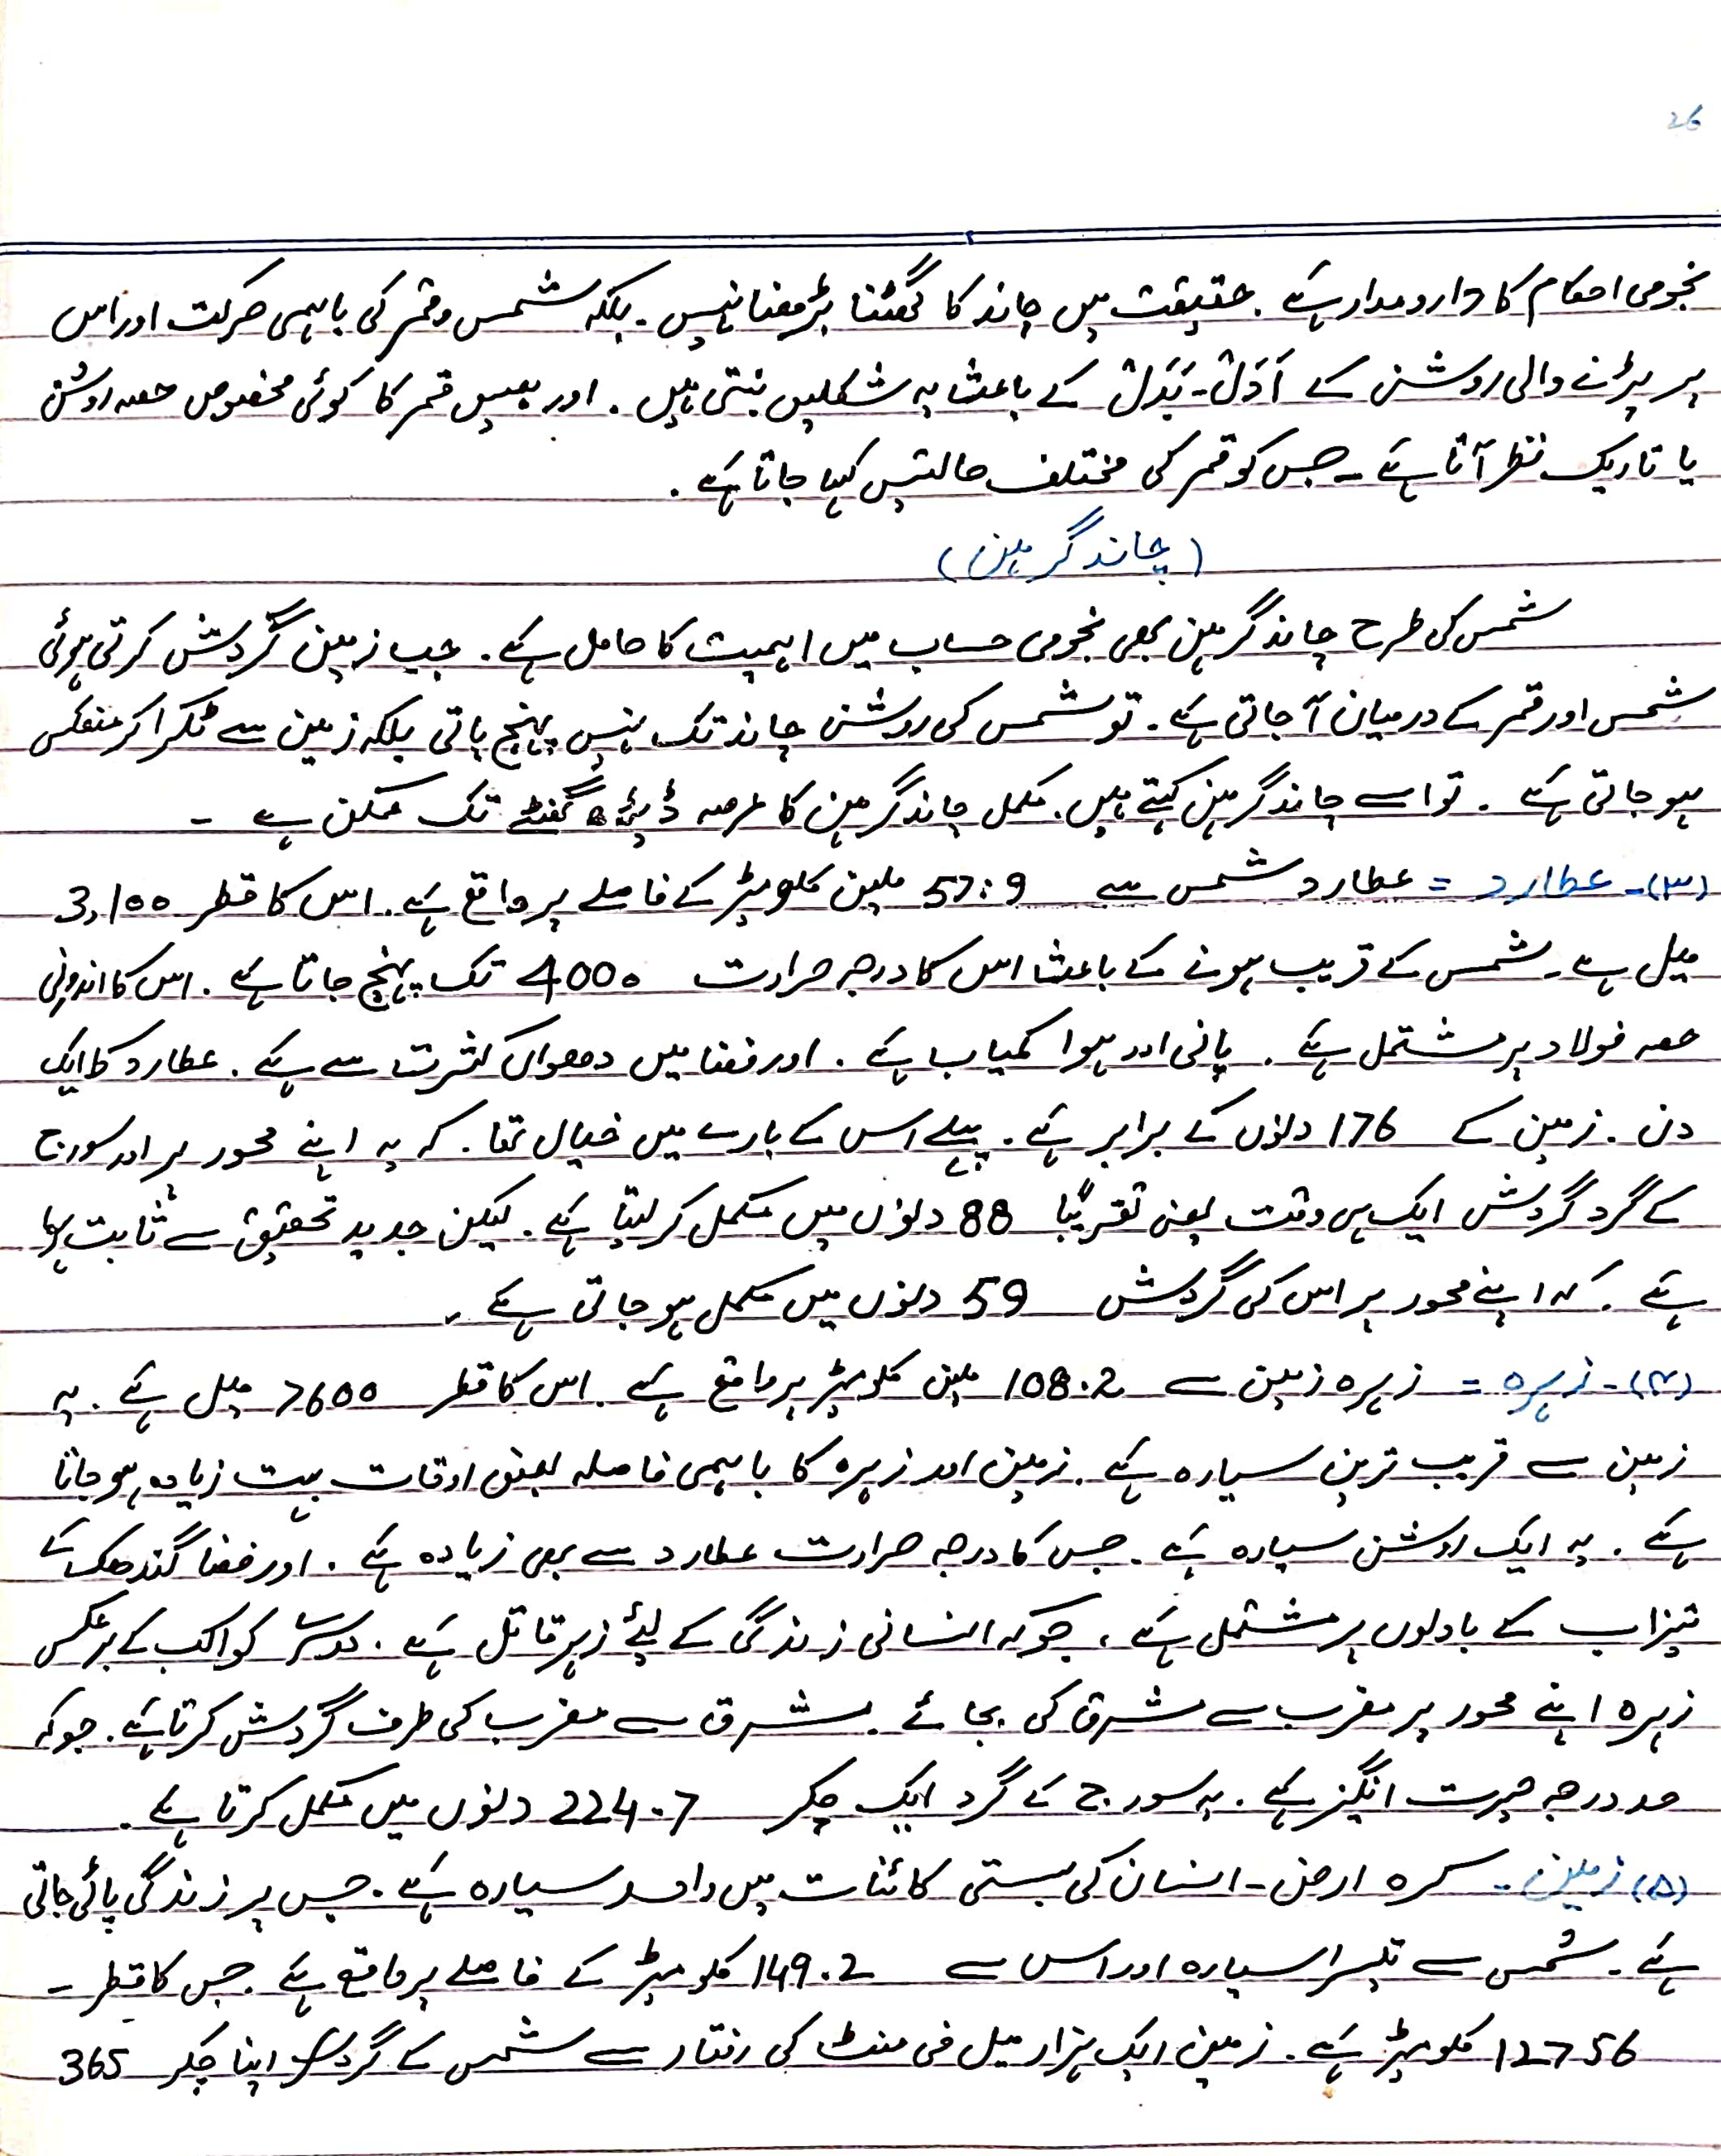 26
نجومی احکام کا دارومدار ہے۔ حقیقت میں چاند کا گھٹنا بڑھنا نہیں۔ بلکہ شمس و قمر کی باہمی حرکت اور اس
پر پڑنے والی روشنی کے اَدَل-بَدَل کے باعث یہ شکلیں بنتی ہیں۔ اور ہمیں قمر کا کوئی مخصوص حصہ روشن
یا تاریک نظر آتا ہے - جس کو قمر کی مختلف حالتیں کہا جاتا ہے۔
(چاند گرہن)
شمس کی طرح چاند گرہن بھی نجومی حساب میں اہمیت کا حامل ہے۔ جب زمین گردش کرتی ہوئی
شمس اور قمر کے درمیان آ جاتی ہے۔ تو شمس کی روشنی چاند تک نہیں پہنچ پاتی بلکہ زمین سے ٹکرا کر منعکس
ہو جاتی ہے۔ تو اسے چاند گرہن کہتے ہیں۔ مکمل چاند گرہن کا عرصہ ڈیڑھ گھنٹے تک ممکن ہے -
(۳)- عطارد = عطارد شمس سے 57:9 ملین کلومیٹر کے فاصلے پر واقع ہے۔ اس کا قطر 3,100
میل ہے۔ شمس کے قریب ہونے کے باعث اس کا درجہ حرارت 400° تک پہنچ جاتا ہے۔ اس کا اندرونی
حصہ فولاد پر مشتمل ہے۔ پانی اور ہوا کمیاب ہے۔ اور فضا میں دھواں کثرت سے ہے۔ عطارد کا ایک
دن۔ زمین کے 176 دنوں کے برابر ہے۔ پہلے اس کے بارے میں خیال تھا۔ کہ یہ اپنے محور پر اور سورج
کے گرد گردش ایک ہی وقت یعنی تقریباً 88 دنوں میں مکمل کر لیتا ہے۔ لیکن جدید تحقیق سے ثابت ہوا
ہے۔ کہ اپنے محور پر اس کی گردش 59 دنوں میں مکمل ہو جاتی ہے۔
(۴)- زہرہ = زہرہ زمین سے 108.2 ملین کلومیٹر پر واقع ہے۔ اس کا قطر 7600 میل ہے۔ یہ
زمین سے قریب ترین سیارہ ہے۔ زمین اور زہرہ کا باہمی فاصلہ بعض اوقات بہت زیادہ ہو جاتا
ہے۔ یہ ایک روشن سیارہ ہے۔ جس کا درجہ حرارت عطارد سے بھی زیادہ ہے۔ اور فضا گندھک کے
تیزاب کے بادلوں پر مشتمل ہے، جو کہ انسانی زندگی کے لیئے زہر قاتل ہے۔ دوسرے کواکب کے برعکس
زہرہ اپنے محور پر مغرب سے مشرق کی بجائے۔ مشرق سے مغرب کی طرف گردش کرتا ہے۔ جو کہ
حد درجہ حیرت انگیز ہے۔ یہ سورج کے گرد ایک چکر 224.7 دنوں میں مکمل کرتا ہے۔
(۵) زمین - کرہ ارض - انسان کی بستی کائنات میں واحد سیارہ ہے۔ جس پر زندگی پائی جاتی
ہے۔ شمس سے تیسرا سیارہ اور اس سے 149.2 کلومیٹر کے فاصلے پر واقع ہے۔ جس کا قطر -
12756 کلومیٹر ہے۔ زمین ایک ہزار میل فی منٹ کی رفتار سے شمس کے گرد اپنا چکر 365